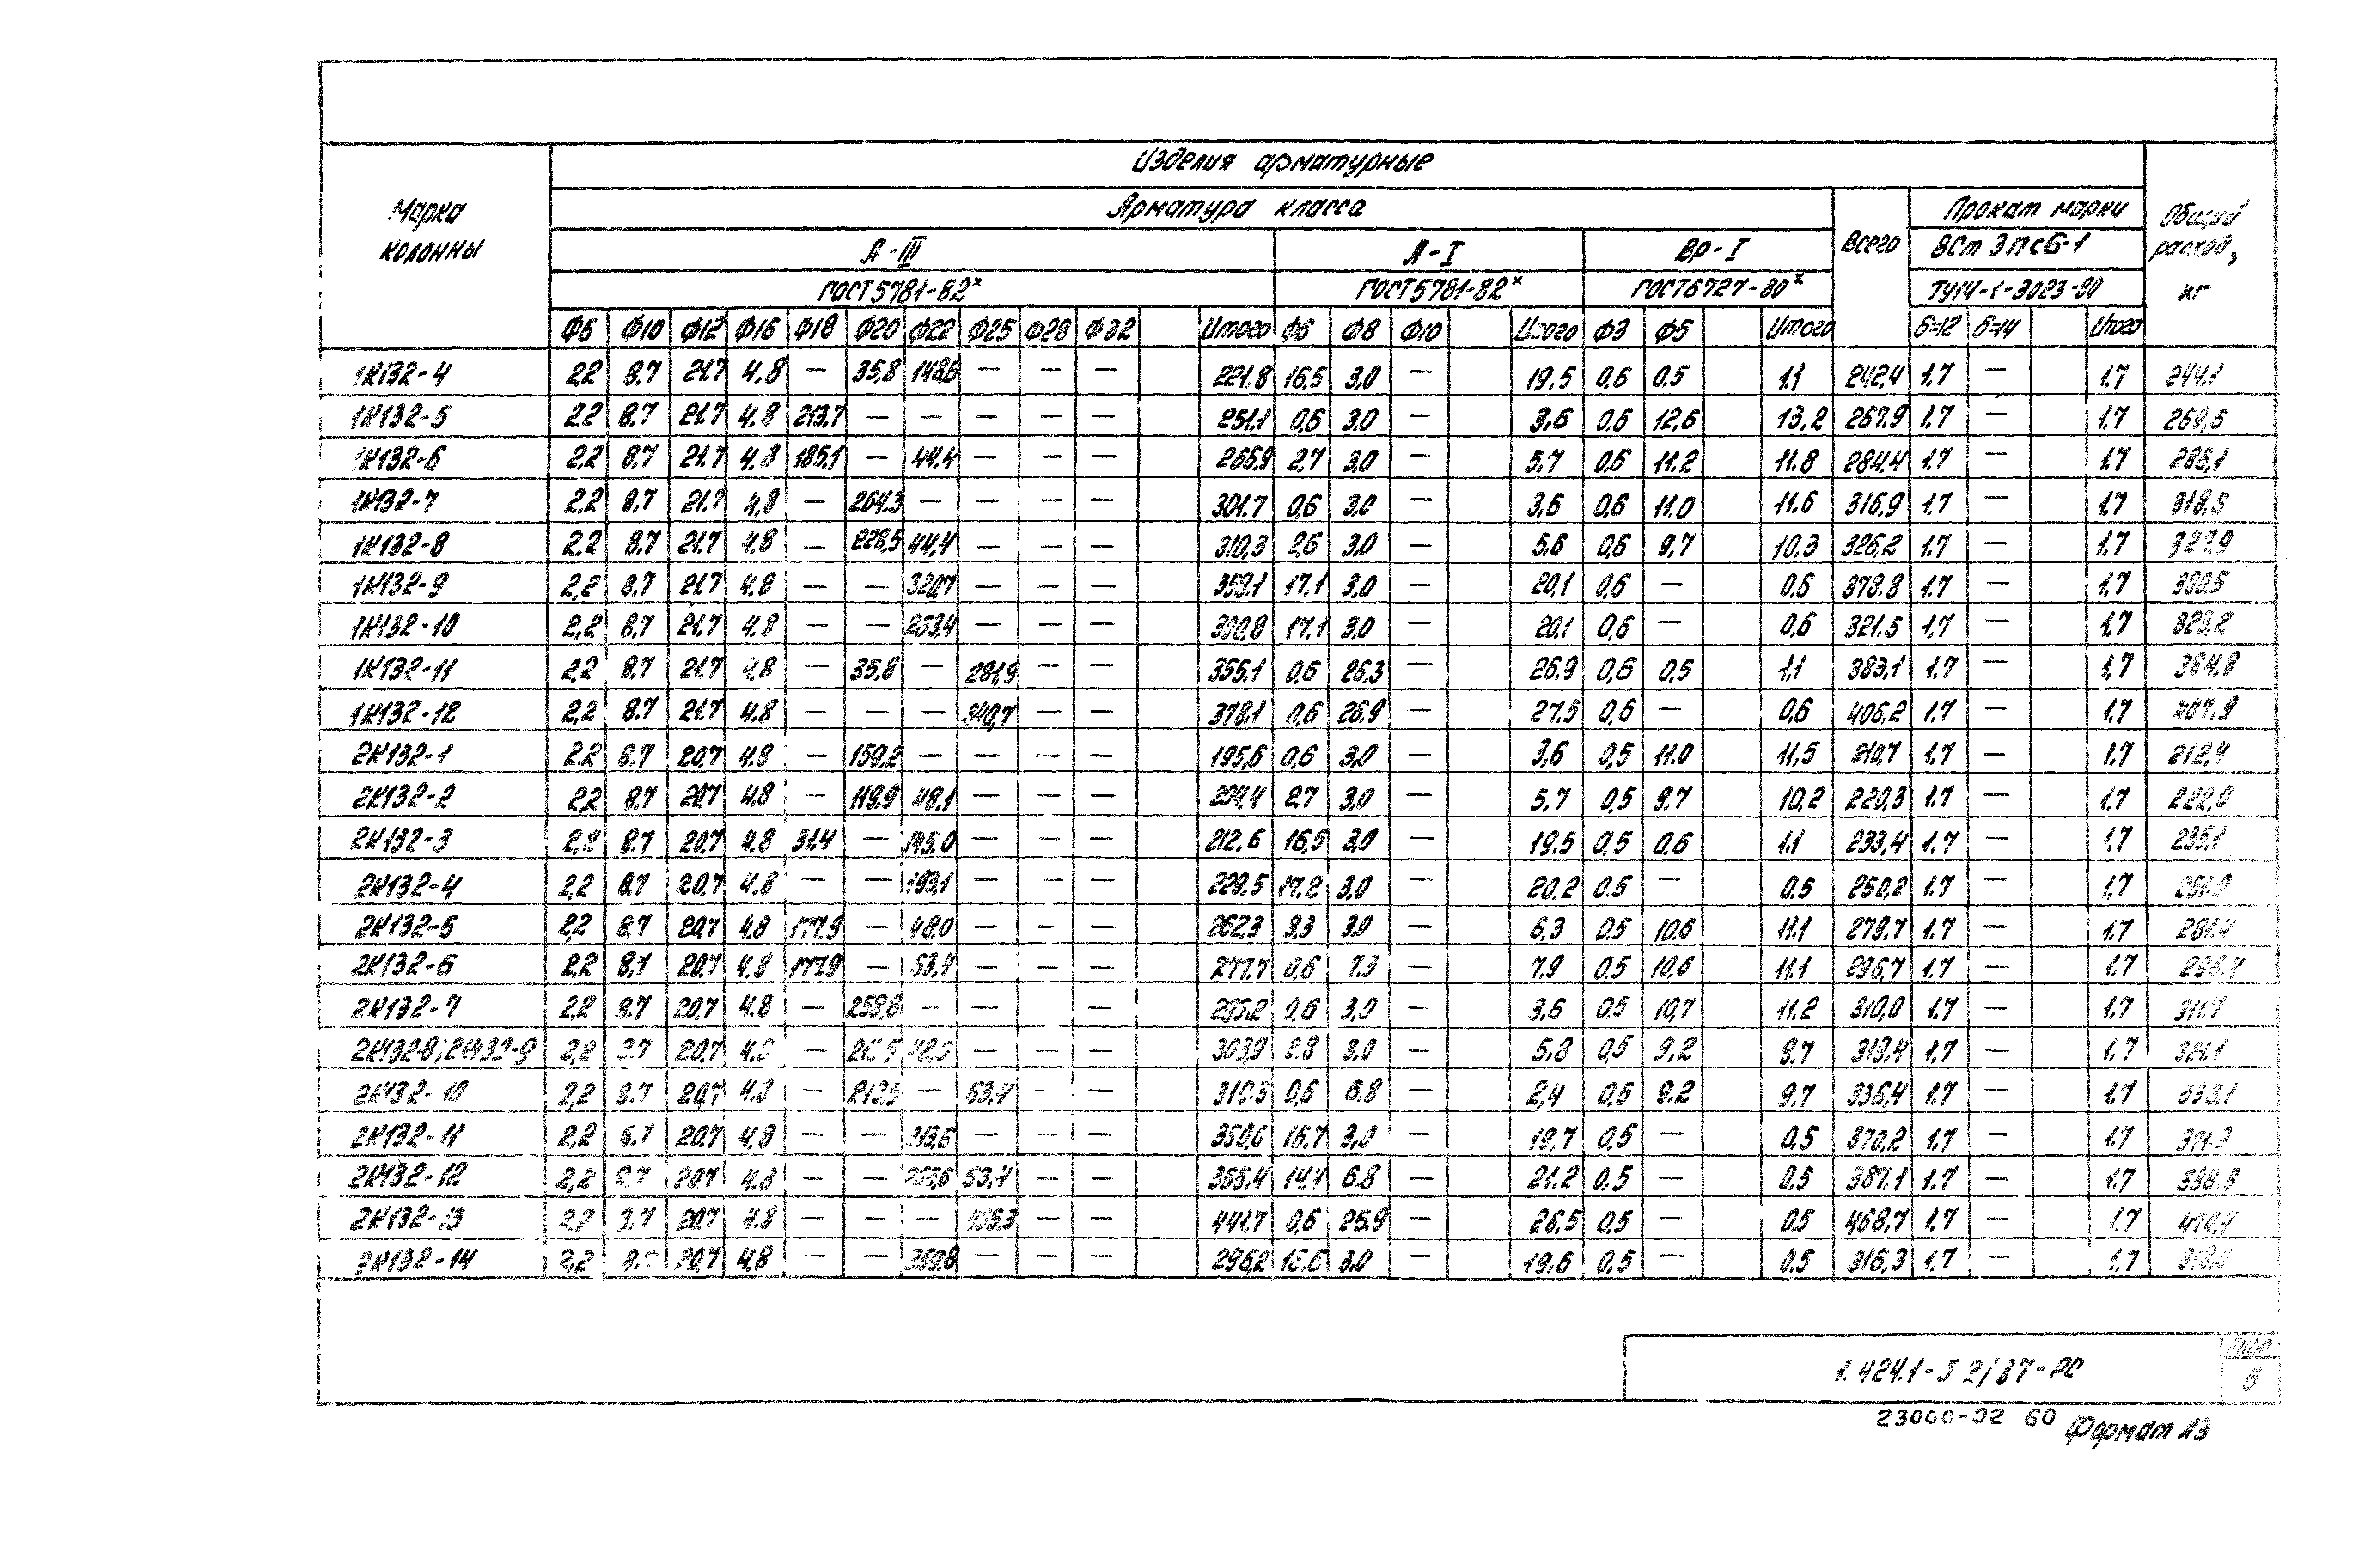 Изделия арматурные
Марка колонны
Арматура класса
Всего
Прокат марки
Общий расход, кг
А-III
А-I
Вр-I
ВСт 3пс6-1
ГОСТ 5781-82ˣ
ГОСТ 5781-82ˣ
ГОСТ 6727-80ˣ
ТУ14-1-3023-80
Ф6 Ф10 Ф12 Ф16 Ф18 Ф20 Ф22 Ф25 Ф28 Ф32 Итого Ф6 Ф8 Ф10 Итого Ф3 Ф5 Итого б=12 б=14 Итого
1К132-4 2,2 8.7 21.7 4.8 — 35,8 148,6 — — — 221.8 16,5 3,0 — 19,5 0,6 0.5 1.1 242,4 1.7 — 1.7 244.1
1К132-5 2.2 8.7 21.7 4.8 213,7 — — — — — 251.1 0,6 3.0 — 3,6 0,6 12,6 13,2 267.9 1.7 — 1.7 269,5
1К132-6 2.2 8.7 21.7 4.8 185,1 — 44.4 — — — 266,9 2,7 3,0 — 5.7 0,6 11.2 11.8 284.4 1.7 — 1.7 286,1
1К132-7 2.2 8.7 21.7 4,8 — 264.3 — — — — 301.7 0,6 3,0 — 3,6 0,6 11.0 11.6 316,9 1.7 — 1,7 318,5
1К132-8 2,2 8.7 21.7 4.8 — 228,5 44,4 — — — 310,3 2,6 3,0 — 5,6 0,6 9,7 10.3 326,2 1.7 — 1.7 327,9
1К132-9 2,2 8.7 21.7 4.8 — — 320,7 — — — 359.1 17.1 3,0 — 20,1 0,6 — 0,6 378.8 1.7 — 1.7 380,5
1К132-10 2,2 8.7 21.7 4.8 — — 263,4 — — — 300,8 17.1 3,0 — 20,1 0,6 — 0,6 321.5 1,7 — 1,7 323,2
1К132-11 2,2 8.7 21.7 4,8 — 35.8 — 281,9 — — 355,1 0,6 26,3 — 26,9 0,6 0,5 1,1 383,1 1.7 — 1,7 384.8
1К132-12 2,2 8.7 21.7 4.8 — — — 340,7 — — 378,1 0,6 26.9 — 27.5 0,6 — 0,6 406,2 1.7 — 1.7 407.9
2К132-1 2.2 8.7 20.7 4.8 — 159,2 — — — — 195,6 0,6 3,0 — 3,6 0,5 11.0 11,5 210,7 1.7 — 1.7 212,4
2К132-2 2,2 8.7 20.7 4.8 — 119.9 48,1 — — — 204,4 2.7 3,0 — 5,7 0,5 9.7 10,2 220,3 1.7 — 1.7 222,0
2К132-3 2,2 8.7 20.7 4.8 31.4 — 145.0 — — — 212,6 16,5 3,0 — 19.5 0.5 0.6 1.1 233,4 1.7 — 1.7 235.1
2К132-4 2,2 8.7 20,7 4.8 — — 193,1 — — — 229.5 17.2 3,0 — 20,2 0.5 — 0.5 250,2 1.7 — 1,7 251.9
2К132-5 2,2 8.7 20,7 4.8 177.9 — 48,0 — — — 262,3 3,3 3.0 — 6,3 0.5 10,6 11.1 279.7 1.7 — 1.7 281.4
2К132-6 2,2 8.7 20.7 4.8 177.9 — 63,4 — — — 277.7 0,6 7.3 — 7.9 0.5 10,6 11.1 296,7 1.7 — 1.7 298,4
2К132-7 2,2 8.7 20,7 4.8 — 258,8 — — — — 295,2 0,6 3,0 — 3,6 0,5 10,7 11.2 310,0 1.7 — 1.7 311.7
2К132-8; 2К132-9 2,2 8.7 20,7 4.8 — — — — 303,9 2.8 3,0 — 5,8 0,5 9,2 9.7 319,4 1,7 — 1,7 321.1
2К132-10 2,2 8.7 20,7 4.8 — — 63,4 — — 0,6 6.8 — 2,4 0,5 9.2 9.7 336,4 1.7 — 1.7 338,1
2К132-11 2,2 8.7 20,7 4,8 — — — — — 350,0 16.7 3,0 — 19,7 0,5 — 0,5 370,2 1,7 — 1.7 371.9
2К132-12 2,2 8.7 20.7 4.8 — — 63,4 — — 365,4 14,4 6.8 — 21.2 0.5 — 0,5 387.1 1.7 — 1.7 388.8
2К132-13 2,2 8.7 20.7 4.8 — — — 405,3 — — 441.7 0,6 25,9 — 26,5 0,5 — 0.5 468,7 1.7 — 1.7 470,4
2К132-14 2,2 20,7 4,8 — — 259,8 — — — 296,2 16,6 3,0 — 19.6 0.5 — 0.5 316,3 1.7 — 1.7 318,0
1.424.1-5 2/87-РС
Лист
5
23000-02 60
Формат А3